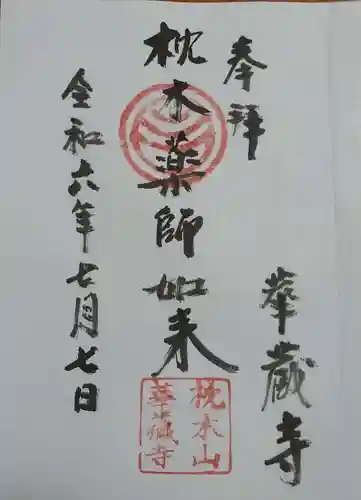 奉拝
華蔵寺
枕木薬師如来
令和六年七月七日
枕木山
華蔵寺